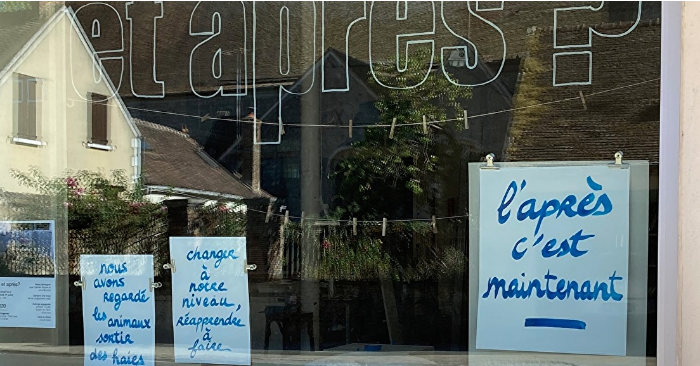 et après ?
et après?
nous
avons
regardé
les animaux
sortir
des haies
changer
à
notre
niveau,
réapprendre
à
faire
l'après
c'est
maintenant